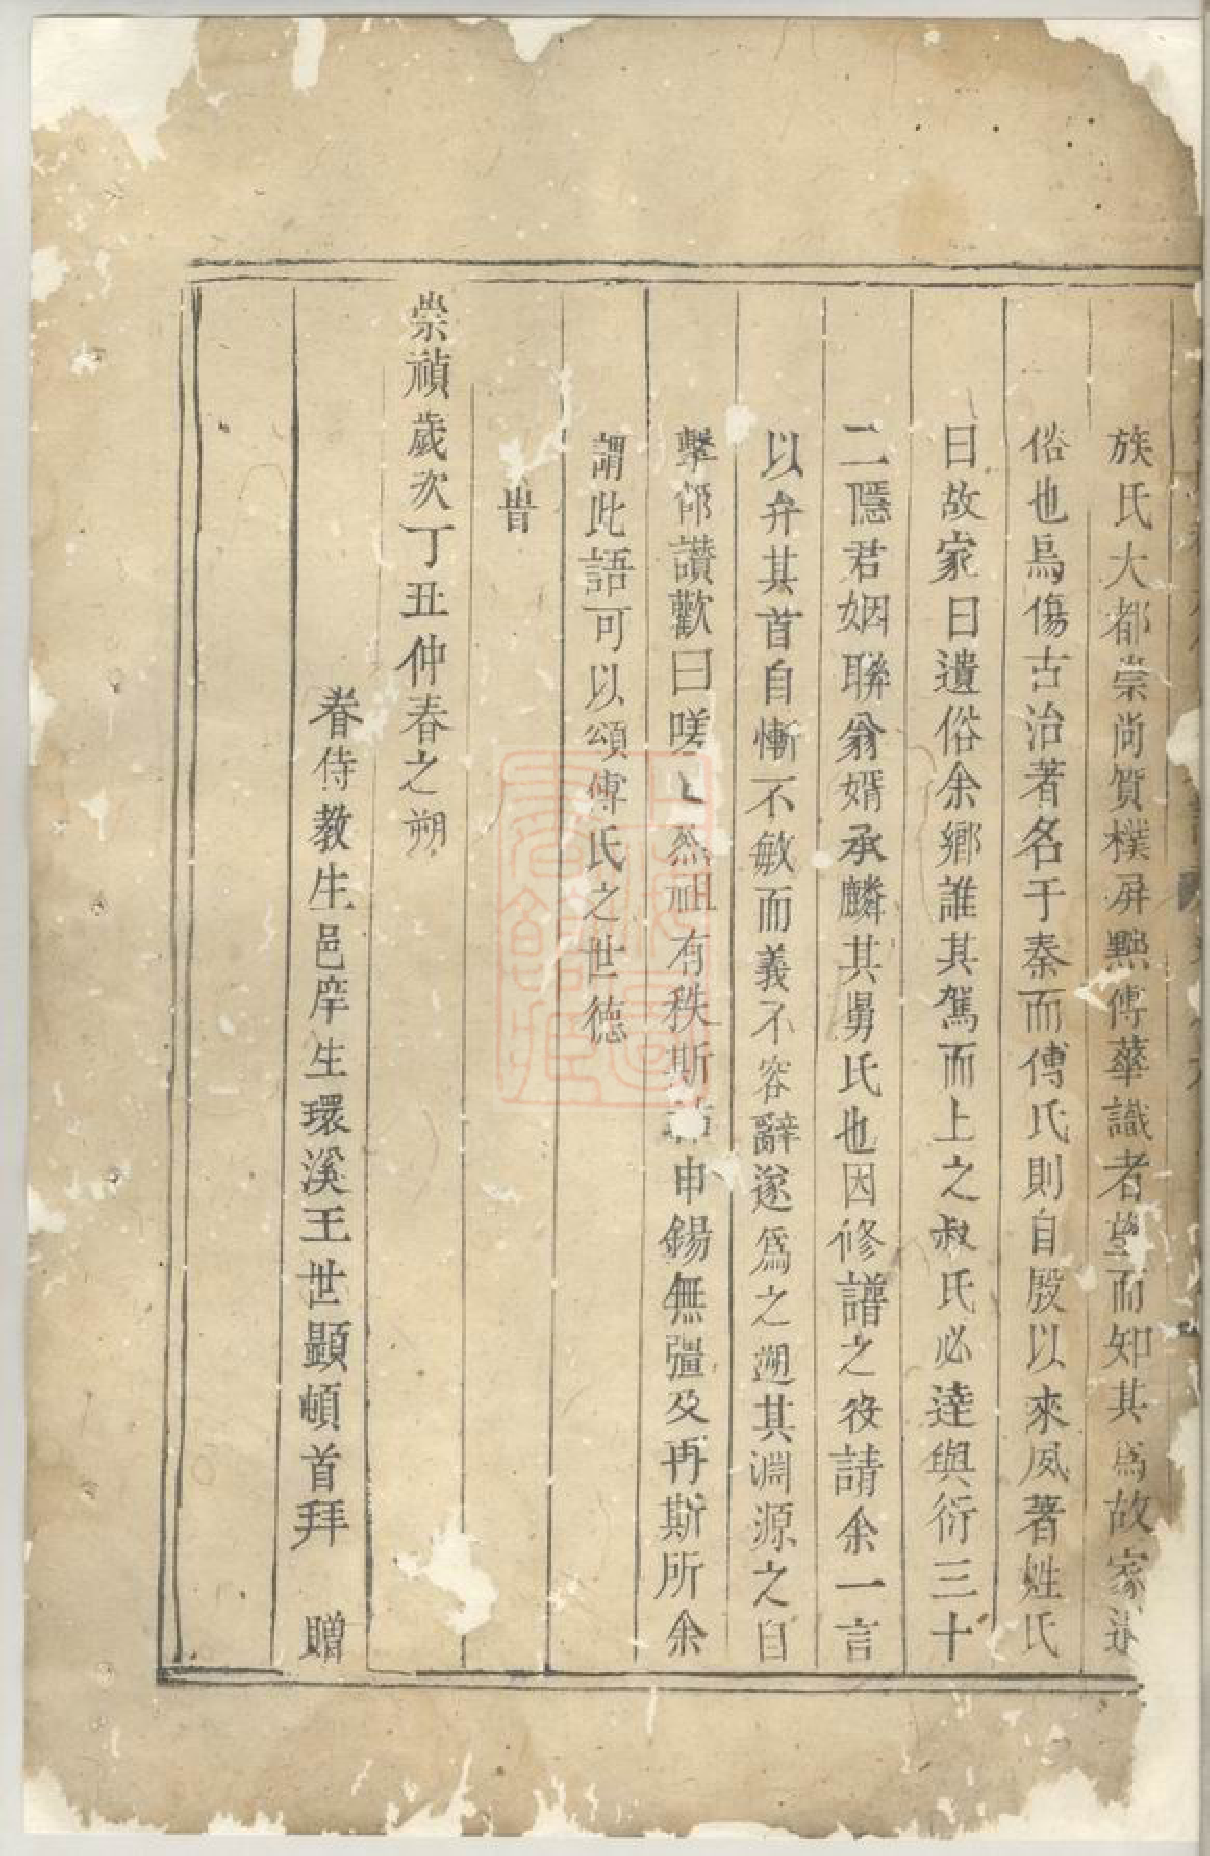 族氏大都崇尚質樸屏黜傅華識者望而知其為故家遺
俗也烏傷古治著名于秦而傅氏則自殷以來夙著姓氏
曰故家曰遺俗余鄉誰其駕而上之叔氏必達與衍三十
二隱君姻聯翁婿承麟其舅氏也因修譜之役請余一言
以弁其首自慚不敏而義不容辭遂為之遡其淵源之自
擊節讃歎曰嗟〻烈祖有秩斯祜申錫無彊及再斯所余
謂此語可以頌傅氏之世德
旹
崇禎歲次丁丑仲春之朔
眷侍教生邑庠生環溪王世顯頓首拜 贈